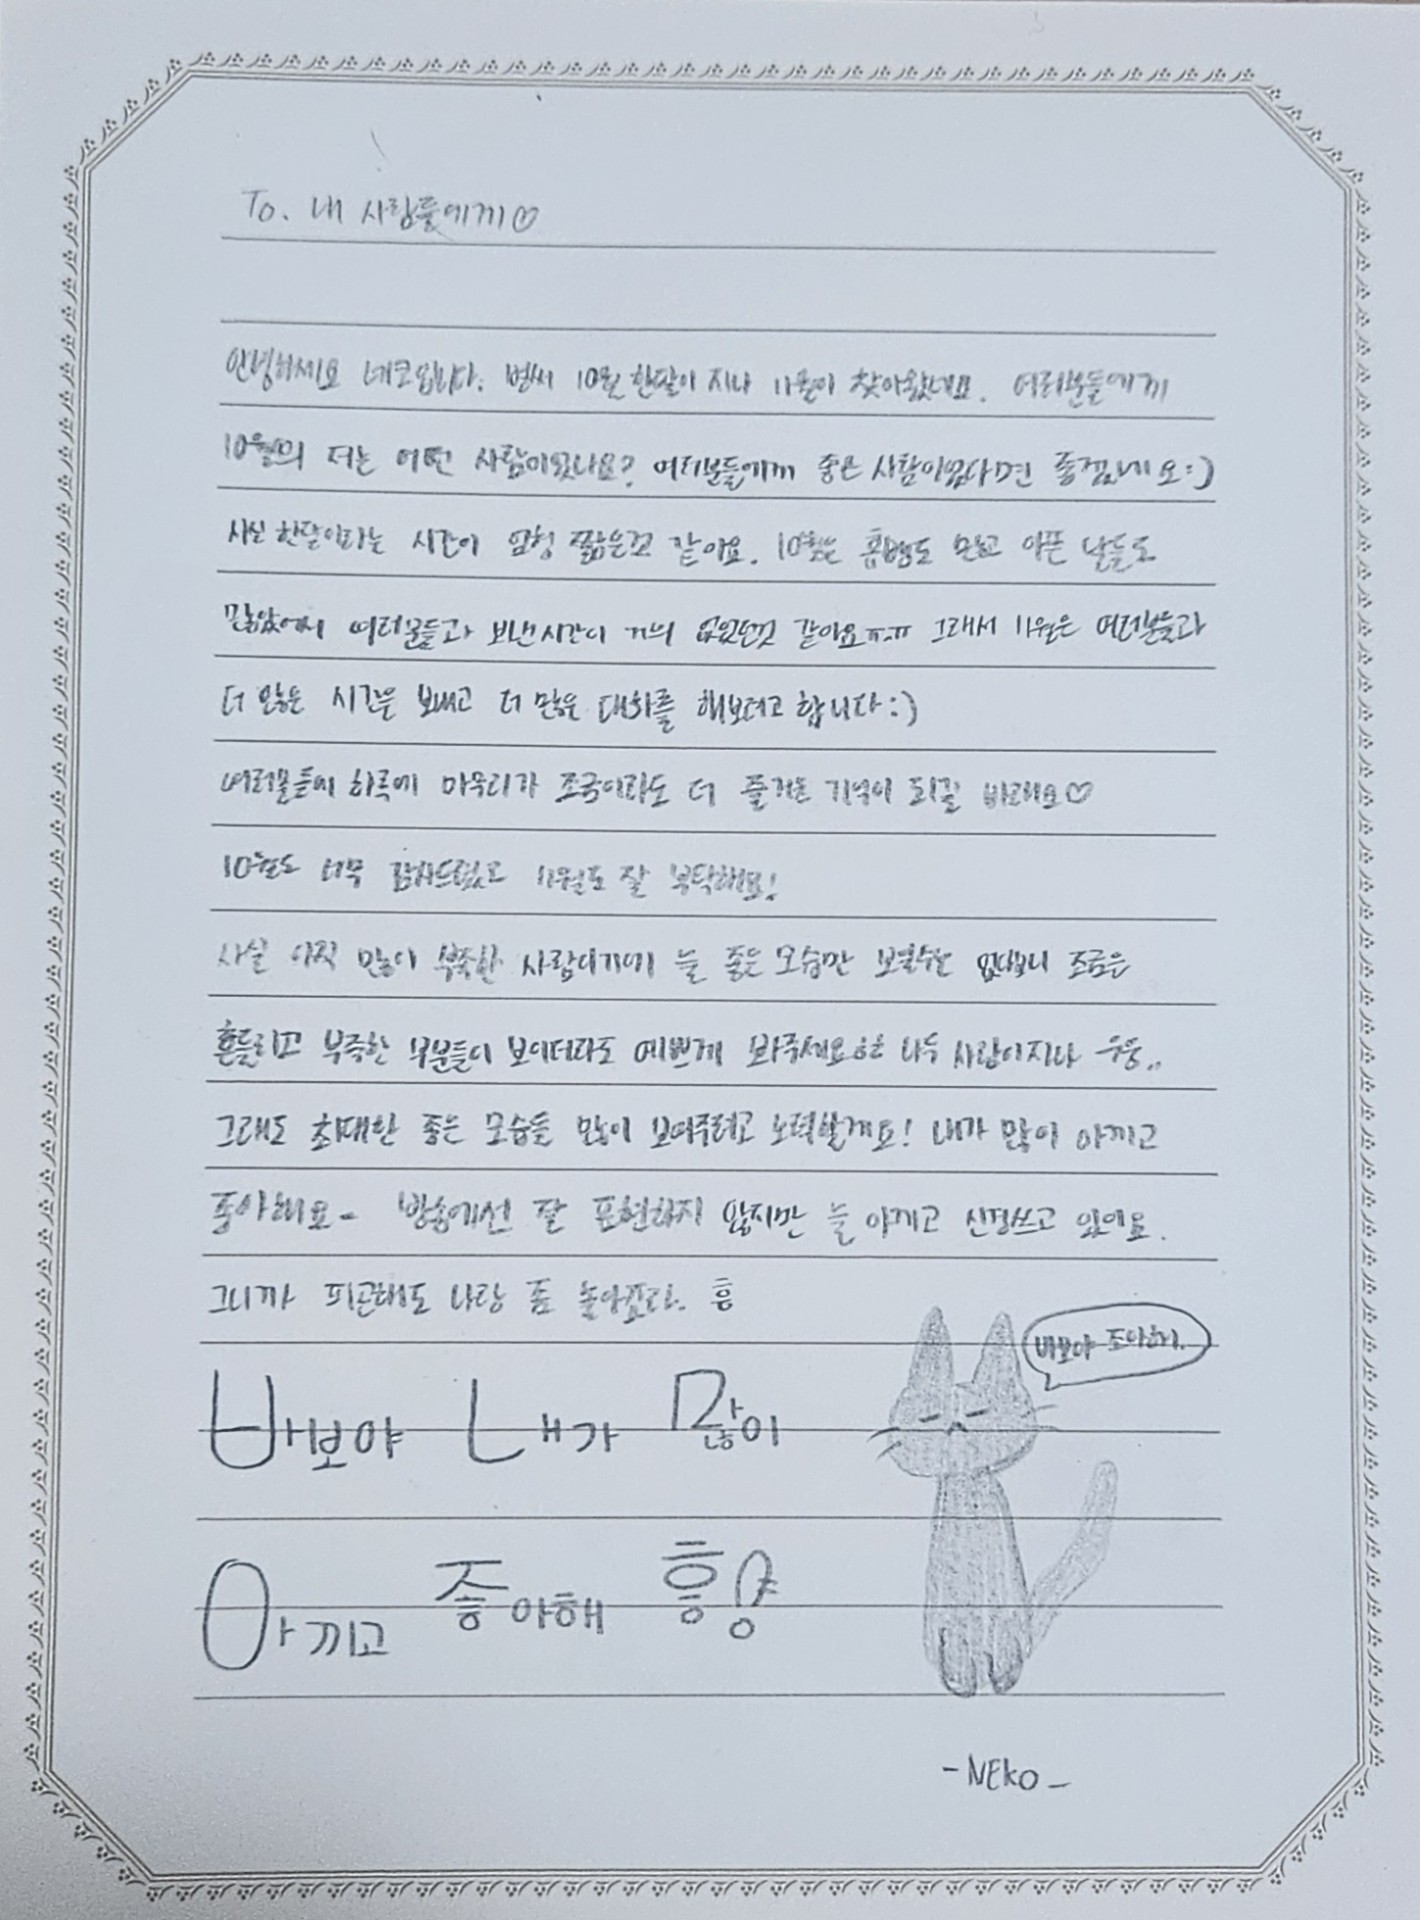 To. 내 사람들에게♡
안녕하세요 네코입니다. 벌써 10월 한달이 지나 11월이 찾아왔네요. 여러분들에게
10월의 저는 어떤 사람이었나요? 여러분들에게 좋은 사람이였다면 좋겠네요:)
사실 한달이라는 시간이 엄청 짧은것 같아요. 10월은 휴방도 많고 아픈 날들도
많았어서 여러분들과 보낸시간이 거의 없었던것 같아요ㅠ.ㅠ 그래서 11월은 여러분들과
더 많은 시간을 보내고 더 많은 대화를 해보려고 합니다:)
여러분들에 하루에 마무리가 조금이라도 더 즐거운 기억이 되길 바래요♡
10월도 너무 감사드렸고 11월도 잘 부탁해요!
사실 아직 많이 부족한 사람이기에 늘 좋은 모습만 보일수는 없다보니 조금은
흔들리고 부족한 부분들이 보이더라도 예쁘게 봐주세요 나두 사람이지나 우웅..
그래도 최대한 좋은 모습들 많이 보여주려고 노력할게요! 내가 많이 아끼고
좋아해요- 방송에선 잘 표현하지 않지만 늘 아끼고 신경쓰고 있어요.
그니까 피곤해도 나랑 좀 놀아줘라. 흥
바보야 조아해.
바보야 내가 많이
아끼고 좋아해 흥양
-NEKO-